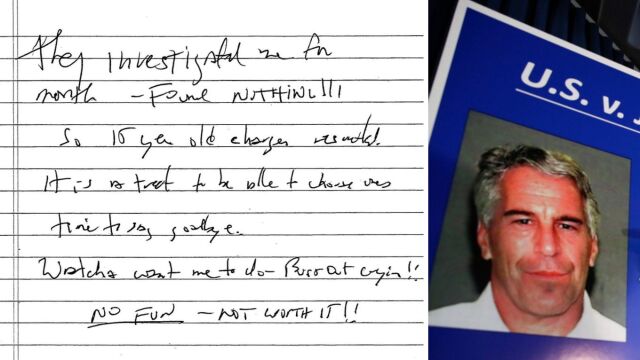 They investigated me for
month – FOUND NOTHING!!!
So 15 year old charges resulted.
It is a treat to be able to choose ones
time to say goodbye.
Watcha want me to do – Burst out cryin!!
NO FUN – NOT WORTH IT!!
U.S. v. J